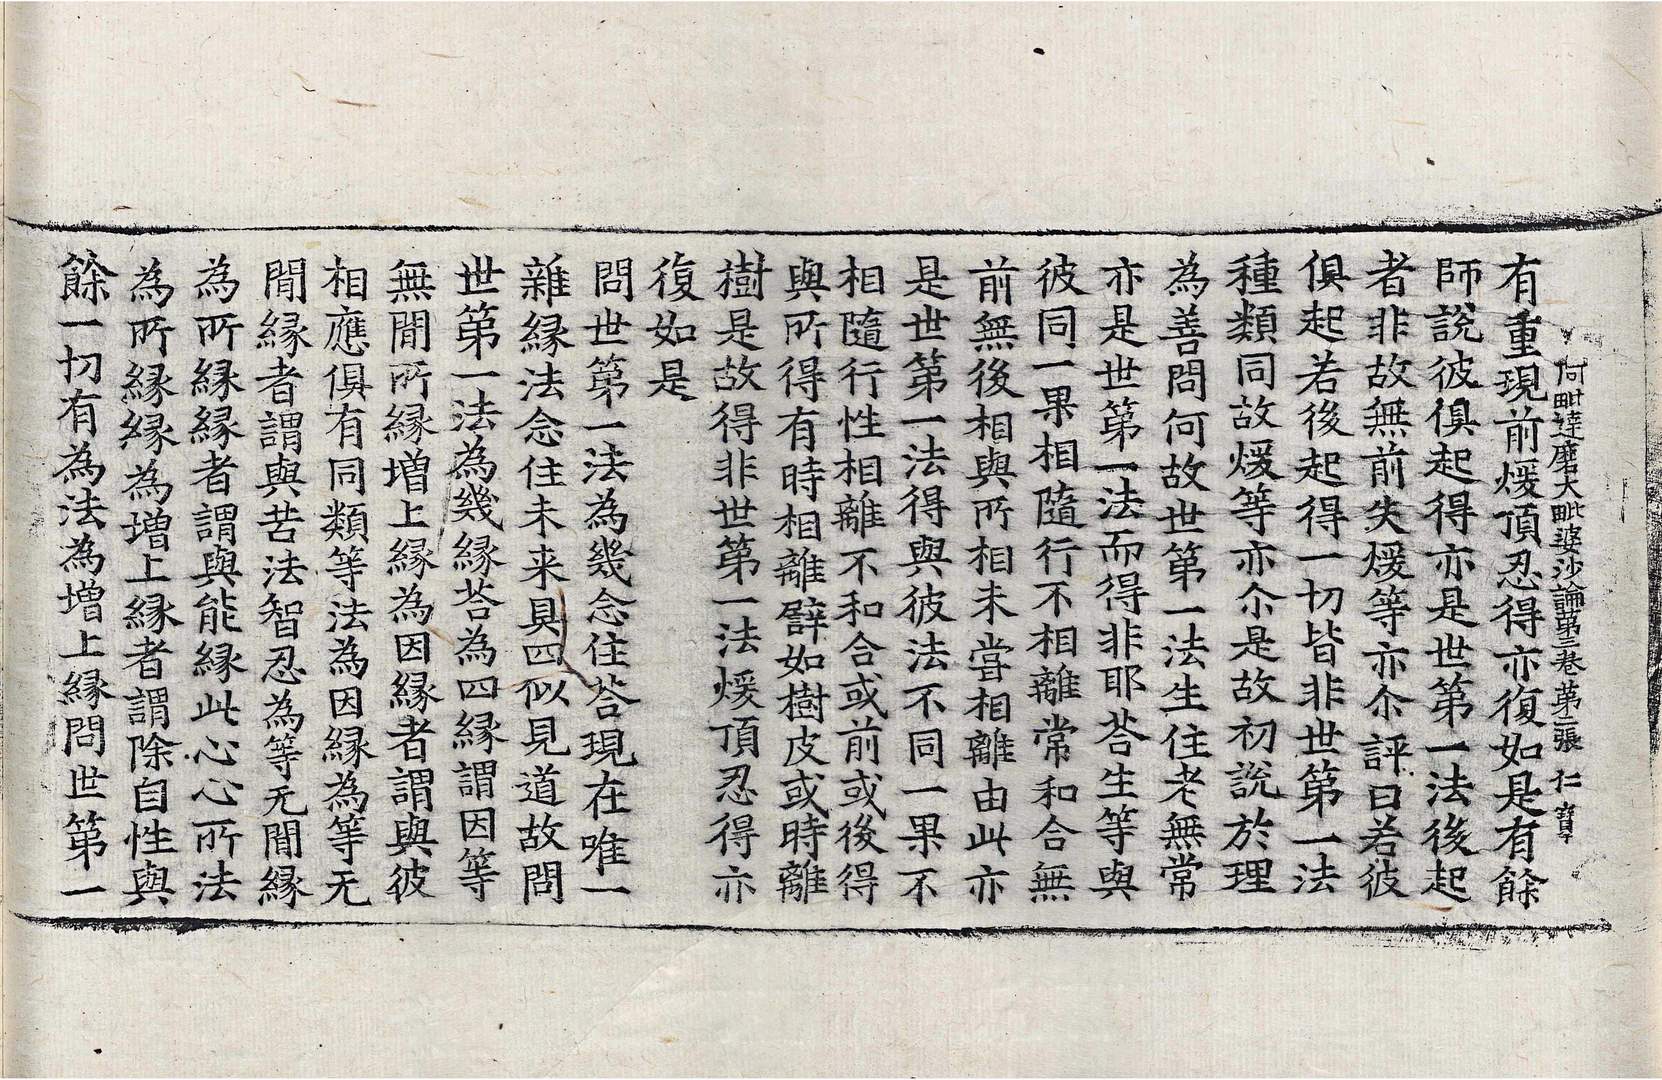 阿毗達磨大毗婆沙論第三卷 第二張 仁 寶
有重現前煖頂忍得亦復如是有餘
師說彼俱起得亦是世第一法後起
者非故無前失煖等亦尒評曰若彼
俱起若後起得一切皆非世第一法
種類同故煖等亦尒是故初說於理
為善問何故世第一法生住老無常
亦是世第一法而得非耶荅生等與
彼同一果相隨行不相離常和合無
前無後相與所相未甞相離由此亦
是世第一法得與彼法不同一果不
相隨行性相離不和合或前或後得
與所得有時相離譬如樹皮或時離
樹是故得非世第一法煖頂忍得亦
復如是
問世第一法為幾念住荅現在唯一
雜緣法念住未来具四似見道故問
世第一法為幾緣荅為四緣謂因等
無間所緣增上緣為因緣者謂與彼
相應俱有同類等法為因緣為等无
間緣者謂與苦法智忍為等无間緣
為所緣緣者謂與能緣此心心所法
為所緣緣為增上緣者謂除自性與
餘一切有為法為增上緣問世第一